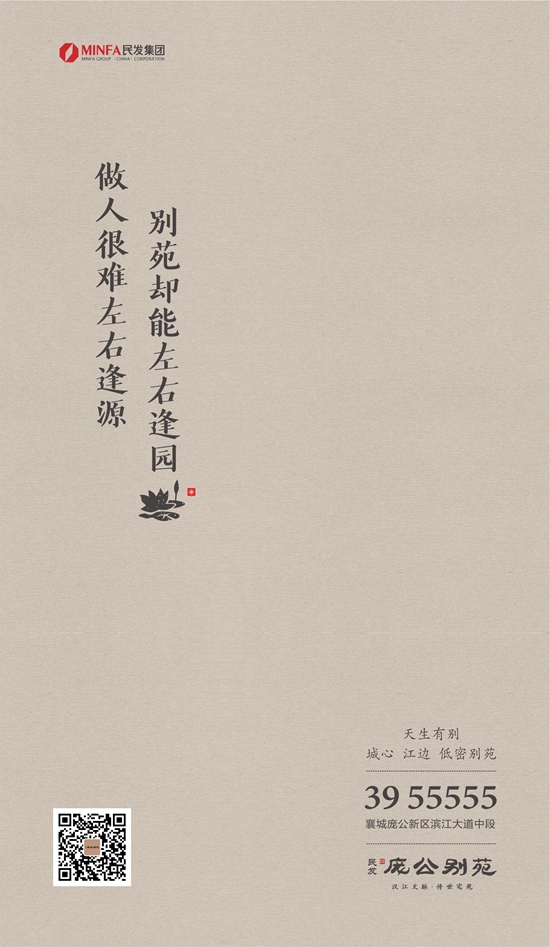 MINFA民发集团
MINFA GROUP (CHINA) CORPORATION
做人很难左右逢源
别苑却能左右逢园
天生有别
城心 江边 低密别苑
39 55555
襄城庞公新区滨江大道中段
民发 庞公别苑
汉江文脉·传世宅苑